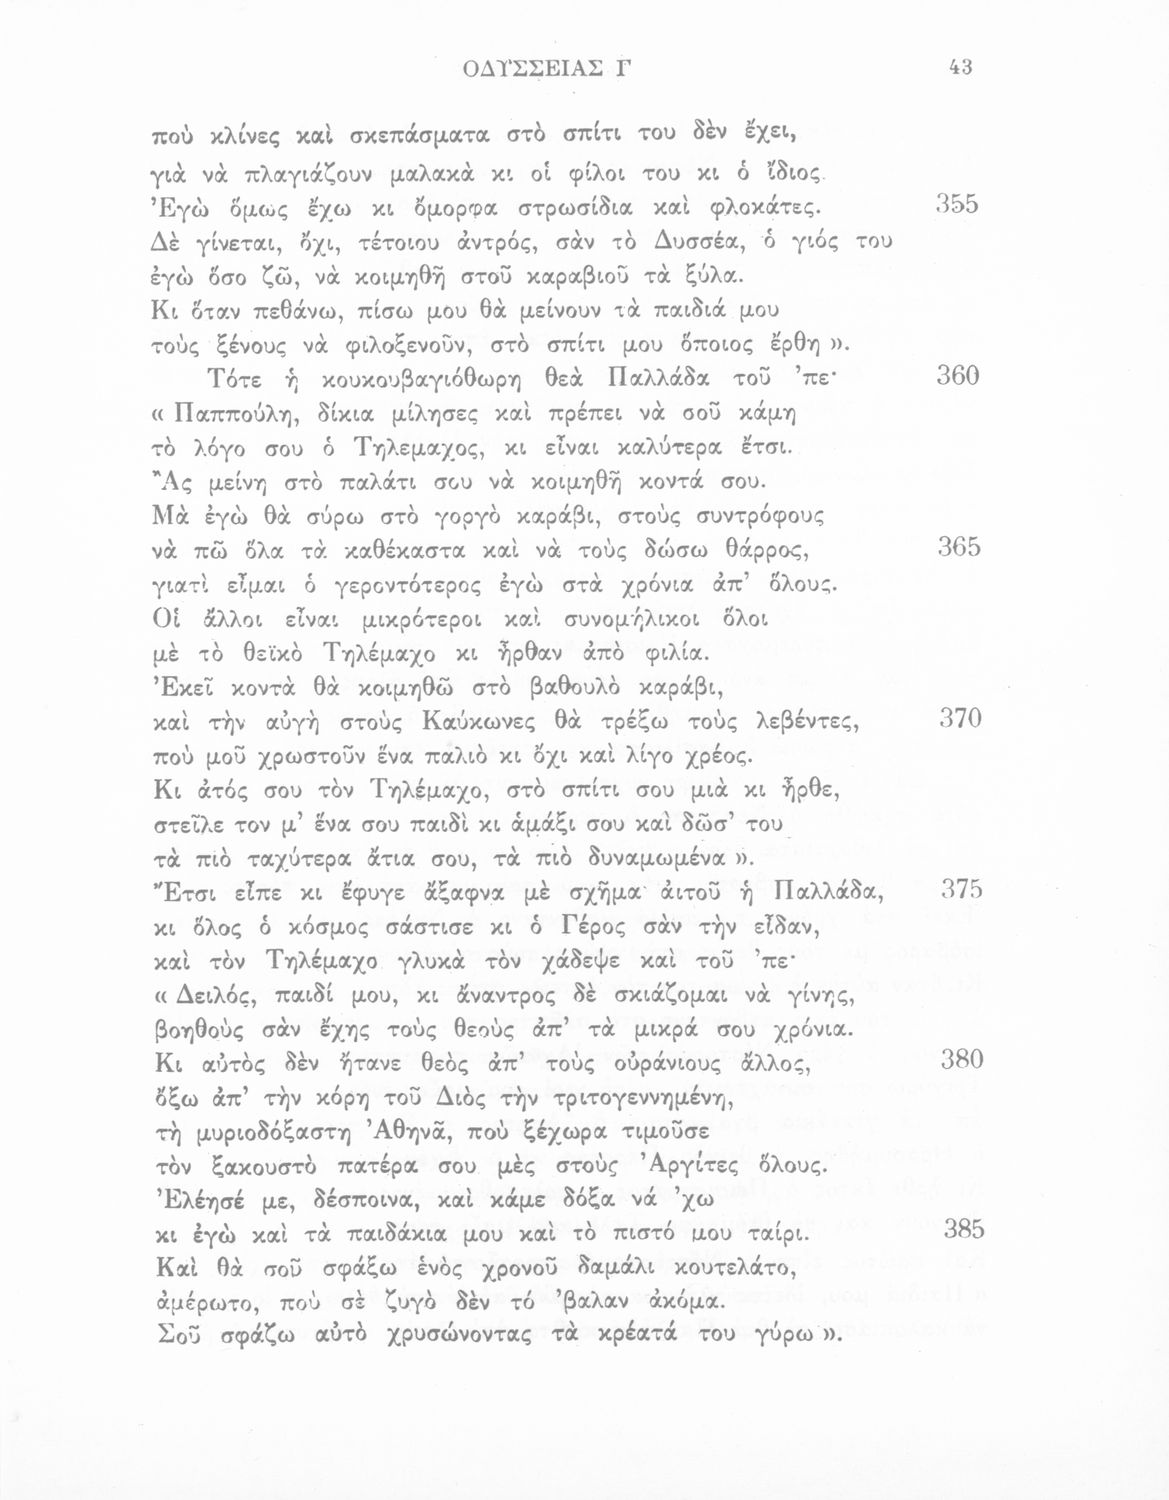 ΟΔΥΣΣΕΙΑΣ Γ 43
ποὺ κλίνες καὶ σκεπάσματα στὸ σπίτι του δὲν ἔχει,
γιὰ νὰ πλαγιάζουν μαλακὰ κι οἱ φίλοι του κι ὁ ἴδιος.
Ἐγὼ ὅμως ἔχω κι ὄμορφα στρωσίδια καὶ φλοκάτες. 355
Δὲ γίνεται, ὄχι, τέτοιου ἀντρός, σὰν τὸ Δυσσέα, ὁ γιός του
ἐγὼ ὅσο ζῶ, νὰ κοιμηθῆ στοῦ καραβιοῦ τὰ ξύλα.
Κι ὅταν πεθάνω, πίσω μου θὰ μείνουν τὰ παιδιά μου
τοὺς ξένους νὰ φιλοξενοῦν, στὸ σπίτι μου ὅποιος ἔρθη ».
Τότε ἡ κουκουβαγιόθωρη θεὰ Παλλάδα τοῦ ’πε·  360
« Παππούλη, δίκια μίλησες καὶ πρέπει νὰ σοῦ κάμη
τὸ λόγο σου ὁ Τηλεμαχος, κι εἶναι καλύτερα ἔτσι.
Ἂς μείνη στὸ παλάτι σου νὰ κοιμηθῆ κοντά σου.
Μὰ ἐγὼ θὰ σύρω στὸ γοργὸ καράβι, στοὺς συντρόφους
νὰ πῶ ὅλα τὰ καθέκαστα καὶ νὰ τοὺς δώσω θάρρος, 365
γιατὶ εἶμαι ὁ γεροντότερος ἐγὼ στὰ χρόνια ἀπ’ ὅλους.
Οἱ ἄλλοι εἶναι μικρότεροι καὶ συνομήλικοι ὅλοι
μὲ τὸ θεϊκὸ Τηλέμαχο κι ἦρθαν ἀπὸ φιλία.
Ἐκεῖ κοντὰ θὰ κοιμηθῶ στὸ βαθουλὸ καράβι,
καὶ τὴν αὐγὴ στοὺς Καύκωνες θὰ τρέξω τοὺς λεβέντες, 370
ποὺ μοῦ χρωστοῦν ἕνα παλιὸ κι ὄχι καὶ λίγο χρέος.
Κι ἀτός σου τὸν Τηλέμαχο, στὸ σπίτι σου μιὰ κι ἦρθε,
στεῖλε τον μ’ ἕνα σου παιδὶ κι ἁμάξι σου καὶ δῶσ’ του
τὰ πιὸ ταχύτερα ἄτια σου, τὰ πιὸ δυναμωμένα ».
Ἔτσι εἶπε κι ἔφυγε ἄξαφνα μὲ σχῆμα ἀιτοῦ ἡ Παλλάδα, 375
κι ὅλος ὁ κόσμος σάστισε κι ὁ Γέρος σὰν τὴν εἶδαν,
καὶ τὸν Τηλέμαχο γλυκὰ τὸν χάδεψε καὶ τοῦ ’πε·
« Δειλός, παιδί μου, κι ἄναντρος δὲ σκιάζομαι νὰ γίνης,
βοηθοὺς σὰν ἔχης τοὺς θεοὺς ἀπ’ τὰ μικρά σου χρόνια.
Κι αὐτὸς δὲν ἤτανε θεὸς ἀπ’ τοὺς οὐράνιους ἄλλος, 380
ὄξω ἀπ’ τὴν κόρη τοῦ Διὸς τὴν τριτογεννημένη,
τὴ μυριοδόξαστη Ἀθηνᾶ, ποὺ ξέχωρα τιμοῦσε
τὸν ξακουστὸ πατέρα σου μὲς στοὺς Ἀργίτες ὅλους.
Ἐλέησέ με, δέσποινα, καὶ κάμε δόξα νά ’χω
κι ἐγὼ καὶ τὰ παιδάκια μου καὶ τὸ πιστό μου ταίρι. 385
Καὶ θὰ σοῦ σφάξω ἑνὸς χρονοῦ δαμάλι κουτελάτο,
ἀμέρωτο, ποὺ σὲ ζυγὸ δὲν τό ’βαλαν ἀκόμα.
Σοῦ σφάζω αὐτὸ χρυσώνοντας τὰ κρέατά του γύρω ».